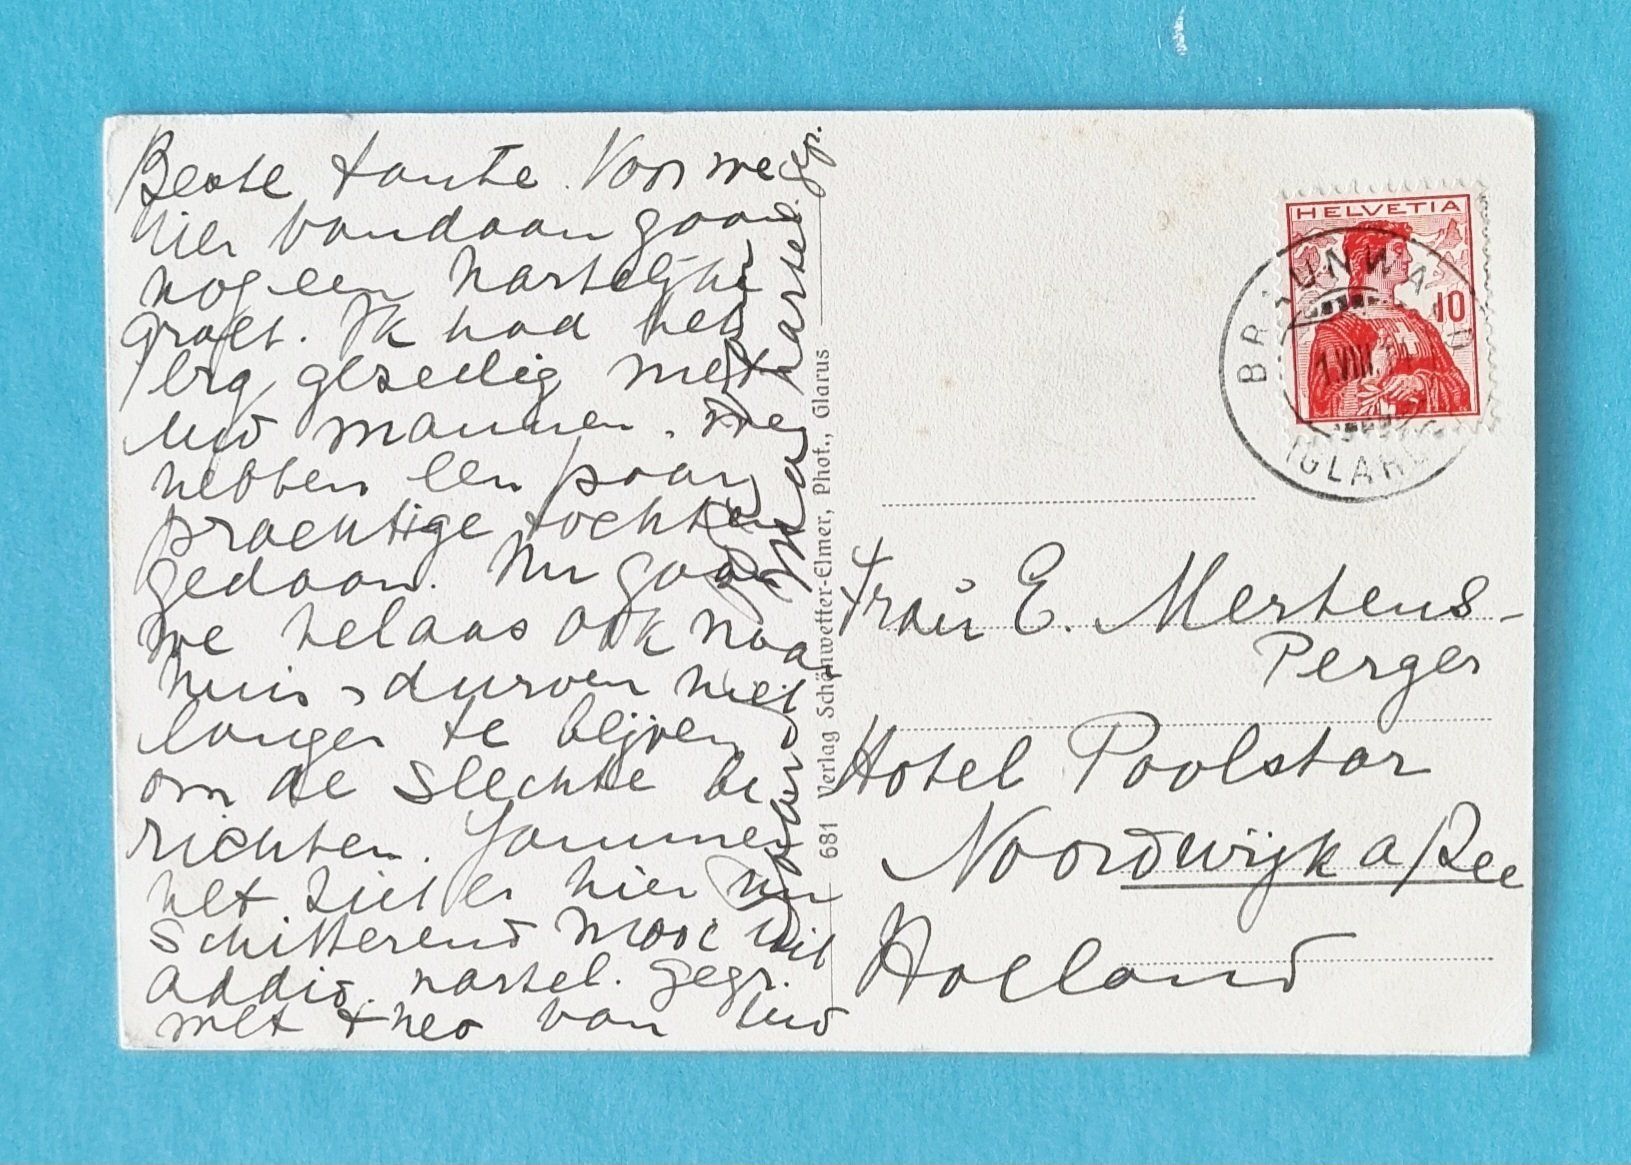 Beste tante. Voor we
hier vandaan gaan
nog een hartelijke
groet. Ik had het
erg gezellig met
mannen. We
hebben een paar
prachtige tochten
gedaan. Nu gaan
we helaas ook naar
huis, durven niet
langer te blijven
om de slechte be
richten. Jammer
het ziet er hier nu
schitterend mooi uit
addio. hartel. gegr.
met theo van
681 Verlag Schönwetter-Elmer, Phot., Glarus
HELVETIA
10
BRAUNWALD
1.VIII.14
(GLARUS)
Frau E. Mertens-
Perger
Hotel Poolstar
Noordwijk a/Zee
Holland